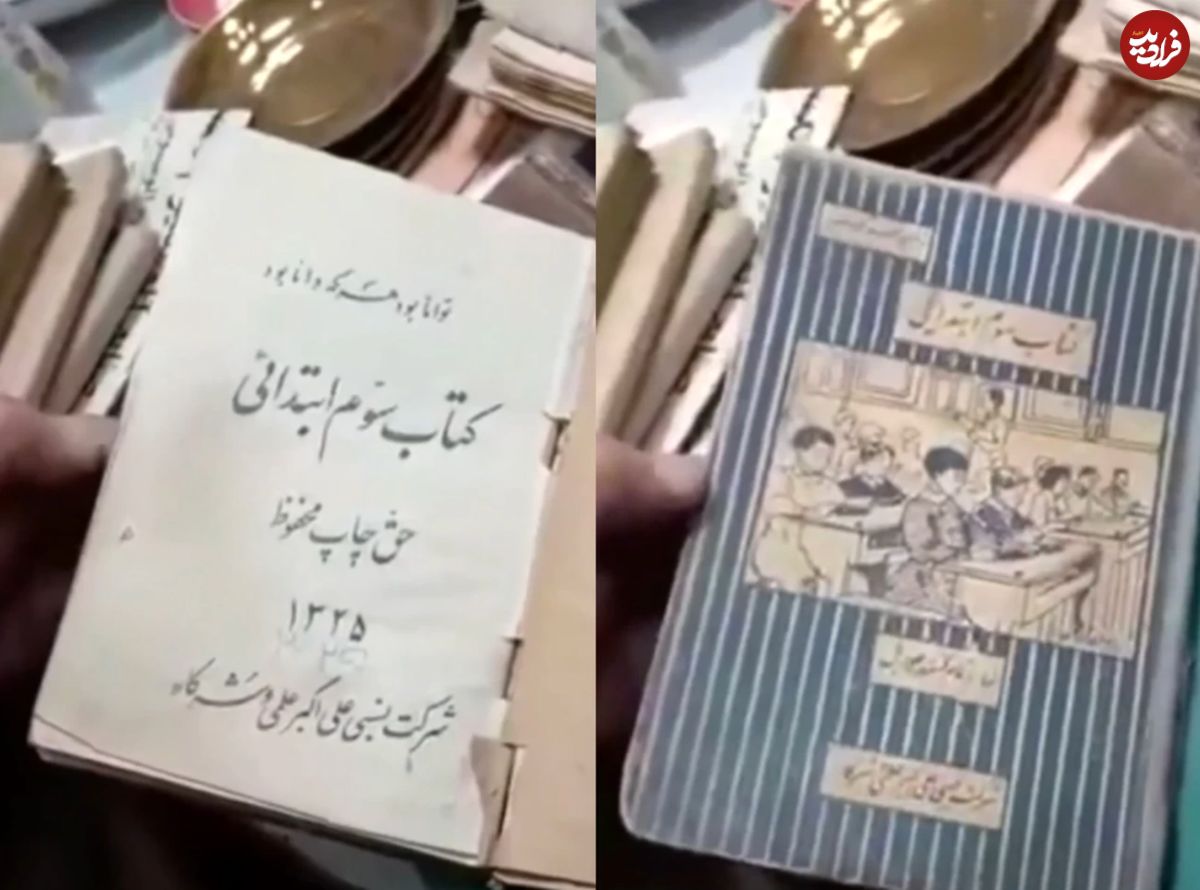 توانا بود هر که دانا بود
کتاب سوم ابتدائی
حق چاپ محفوظ
۱۳۲۵
شرکت نسبی علی اکبر علمی و شرکاء
کتاب سوم ابتدایی
شرکت نسبی علی اکبر علمی و شرکا
فرادید